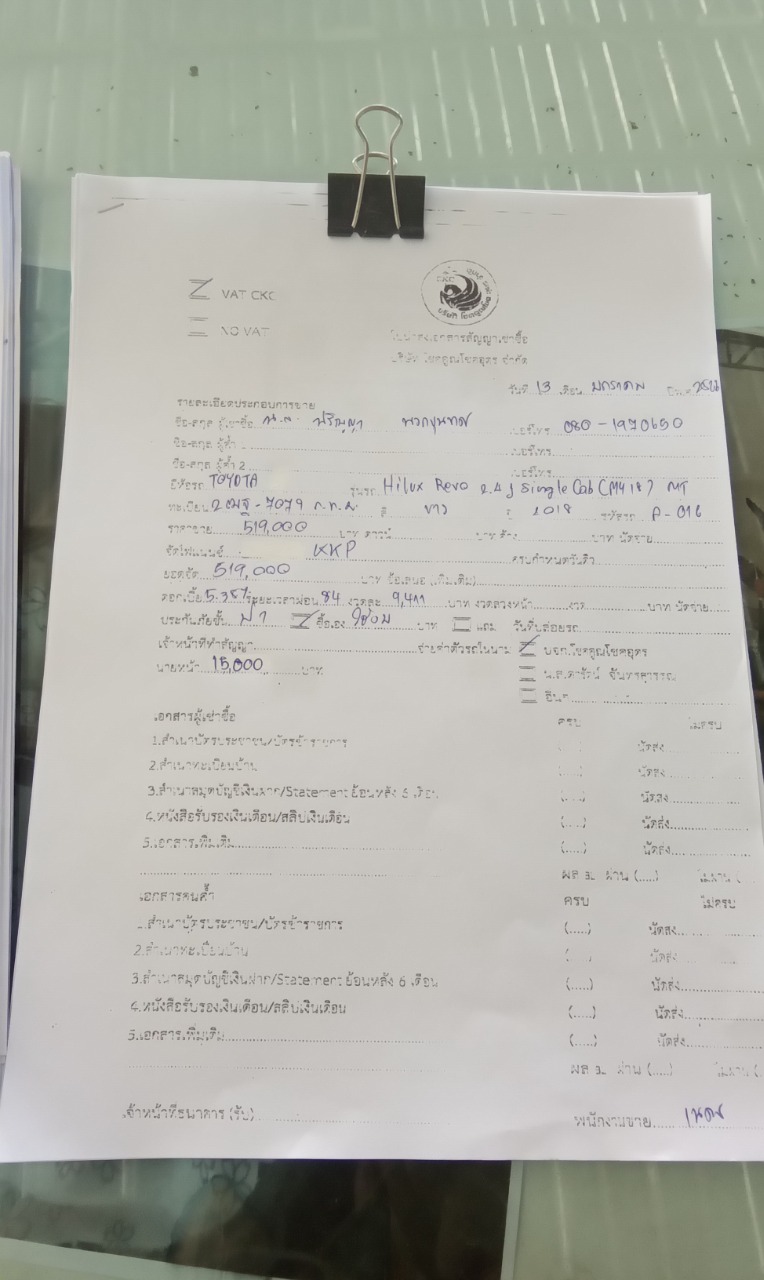 CKC
VAT CKC
NO VAT
ใบนำส่งเอกสารสัญญาเช่าซื้อ
บริษัท โชคคูณโชคอุดร จำกัด
วันที่ 13 เดือน มกราคม
รายละเอียดประกอบการขาย
ชื่อ-สกุล ผู้เช่าซื้อ น.ส. ปริญญา เบอร์โทร 080-1970650
ชื่อ-สกุล ผู้ค้ำ 1 เบอร์โทร
ชื่อ-สกุล ผู้ค้ำ 2 เบอร์โทร
ยี่ห้อรถ TOYOTA รุ่นรถ Hilux Revo 2.4 J Single Cab (MY18) MT
ทะเบียน 2ฒฐ-7079 ก.ท.ม. สี ขาว ปี 2018 รหัสรถ P-016
ราคาขาย 519,000 บาท ดาวน์ บาท ค้าง บาท นัดจ่าย
จัดไฟแนนซ์ KKP ครบกำหนดวันที่
ยอดจัด 519,000 บาท ข้อเสนอ (เพิ่มเติม)
ดอกเบี้ย 5.38% ระยะเวลาผ่อน 84 งวดละ 9,411 บาท งวดล่วงหน้า งวด บาท นัดจ่าย
ประกันภัยชั้น ป1 ซื้อเอง บาท แถม วันที่ปล่อยรถ
เจ้าหน้าที่ทำสัญญา จ่ายค่าตัวรถในนาม บจก.โชคคูณโชคอุดร
นายหน้า 15,000 บาท น.ส.ดารัตน์ จันทรสุวรรณ
อื่นๆ
เอกสารผู้เช่าซื้อ ครบ ไม่ครบ
1.สำเนาบัตรประชาชน/บัตรข้าราชการ (.....) นัดส่ง
2.สำเนาทะเบียนบ้าน (.....) นัดส่ง
3.สำเนาสมุดบัญชีเงินฝาก/Statement ย้อนหลัง 6 เดือน (.....) นัดส่ง
4.หนังสือรับรองเงินเดือน/สลิปเงินเดือน (.....) นัดส่ง
5.เอกสารเพิ่มเติม (.....) นัดส่ง
ผ่าน (.....) ไม่ผ่าน (
เอกสารคนค้ำ ครบ ไม่ครบ
1.สำเนาบัตรประชาชน/บัตรข้าราชการ (.....) นัดส่ง
2.สำเนาทะเบียนบ้าน ( ) นัดส่ง
3.สำเนาสมุดบัญชีเงินฝาก/Statement ย้อนหลัง 6 เดือน (.....) นัดส่ง
4.หนังสือรับรองเงินเดือน/สลิปเงินเดือน (.....) นัดส่ง
5.เอกสารเพิ่มเติม (.....) นัดส่ง
ผ่าน (.....) ไม่ผ่าน (
เจ้าหน้าที่ธนาคาร (รับ) พนักงานขาย